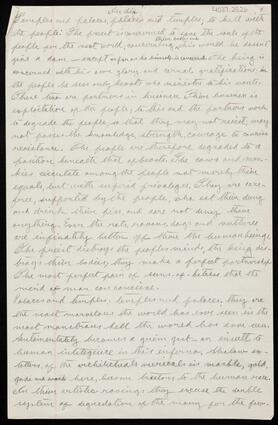 India
4031.2826
Temples and palaces, palaces and temples, to hell with
the people! The priest is concerned to save the souls of the
people for the next world, concerning this world he doesn't
give a damn — except in so far as
concerned with his own glory and carnal gratifications, to
the people he sees only beasts who minister to his wants.
These two are partners in business. Their business is
exploitation of the people, to this end the partners work
to degrade the people, so that they may not resist, may
not possess the knowledge, strength, courage to conceive
resistance. The people are therefore degraded to a
position beneath that of beasts. The cows and mon-
keys circulate among the people not merely their
equals, but with superior privileges. They are care-
free, supported by the people, who eat their dung
and drink their piss, and dare not deny them
anything. Even the rats, ravens, dogs and vultures
are infinitely better off than the human being.
The priest destroys the people's minds, the king des-
troys their bodies, they make a perfect partnership.
The most perfect pair of sons-of-bitches that the
mind of man can conceive.
Palaces and temples, temples and palaces, they are
the most marvelous the world has ever seen in the
most monstrous hell the world has ever seen.
Sentimentality becomes a grim jest — an insult to
human intelligence in this inferno, shallow ex-
tollers of the architectural miracles in marble, gold,
gods and
here, become traitors to the human race.
In their artistic ravings they excuse the whole
system of degradation of the many for the few.